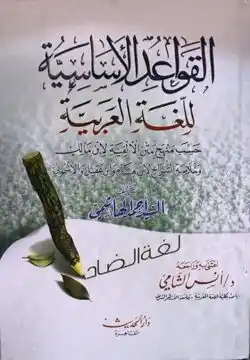 القواعد الأساسية
للغة العربية
حسب منهج متن الألفية لابن مالك
وخلاصة الشراح لابن هشام وابن عقيل والأشموني
تأليف
السيد أحمد الهاشمي
لغة الضاد
اعتنى به وراجعه
د/أنس الشامي
دار الحديث
القاهرة